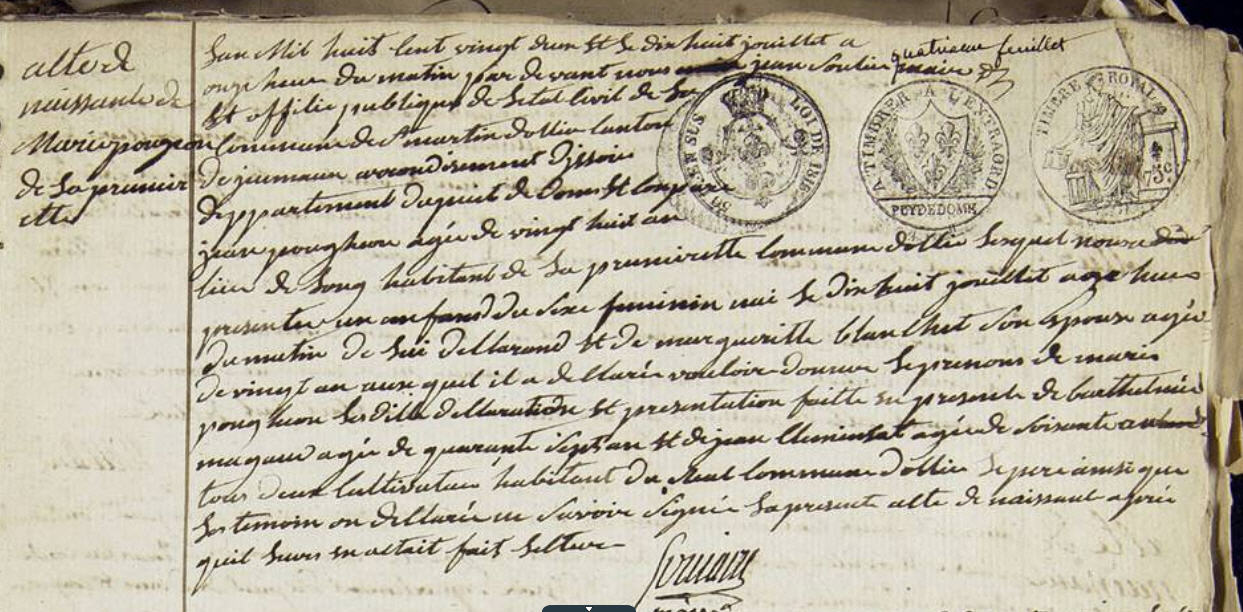 acte de
naissance de
Marie pougeon
de la prunier
ette
quatrieme feuillet
Lan Mil huit Cent vingt dun et le dix huit jouillet a
onze heure du matin par devant nous jean maire
et officie publique de letat Civil de La
Commune de St martin dollie Canton
de jeumeaux arrondisement dissoire
deppartement dupuit de Dome est Comparu
jean poughon agée de vingt huit an
habitant de La prunierette Commune dollie Lequel nous a
presenter un anfand du sexe feminin nai le dix huit jouillet a heure
du matin de lui dellarand et de margueritte blanchet son epouse agée
de vingt an auxquel il a dellarée vouloir donner le prenons de marie
poughon lesditte dellaration et presentation faitte en presende de barthelmée
magaud agée de quarante sept an et de jean agée de soisante an
tous deux Cultivateur habitant du Commune dollie le pere ainsi que
les temoin on dellarée ne savoir signée la present alte de naissant aprée
quil leurs en altait fait lecture
LOI DE 1816
A TIMBRER A L'EXTRAORD
PUY DE DOME
TIMBRE ROYAL